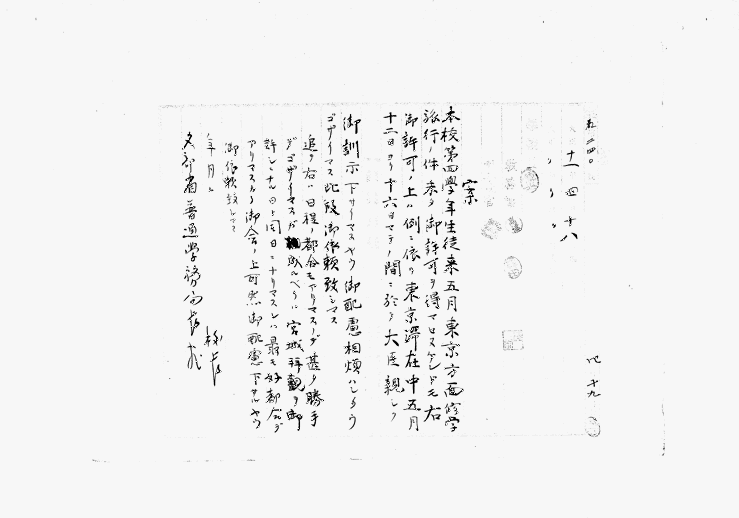 五二四〇
十一 四 十八
四 十九
案
本校第四學年生徒来五月東京方面修学
旅行ノ件未ダ御許可ヲ得マセンケレド元右
御許可ノ上ハ例ニ依リ東京滞在中五月
十二日ヨリ十六日マデノ間ニ於テ大臣親シク
御訓示下サイマスヤウ御配慮相煩ハシタウ
ゴザイマス此段御依頼致シマス
追テ右ハ日程ノ都合モアリマスノデ甚ダ勝手
デゴザイマスガ成ルベク 宮城拝観ヲ御
許シニナル日ト同日ニナリマスレバ最モ好都合デ
アリマスカラ御含ノ上可然御配慮下サルヤウ
御依頼致シマス
年月日
校長
文部省普通学務局長宛